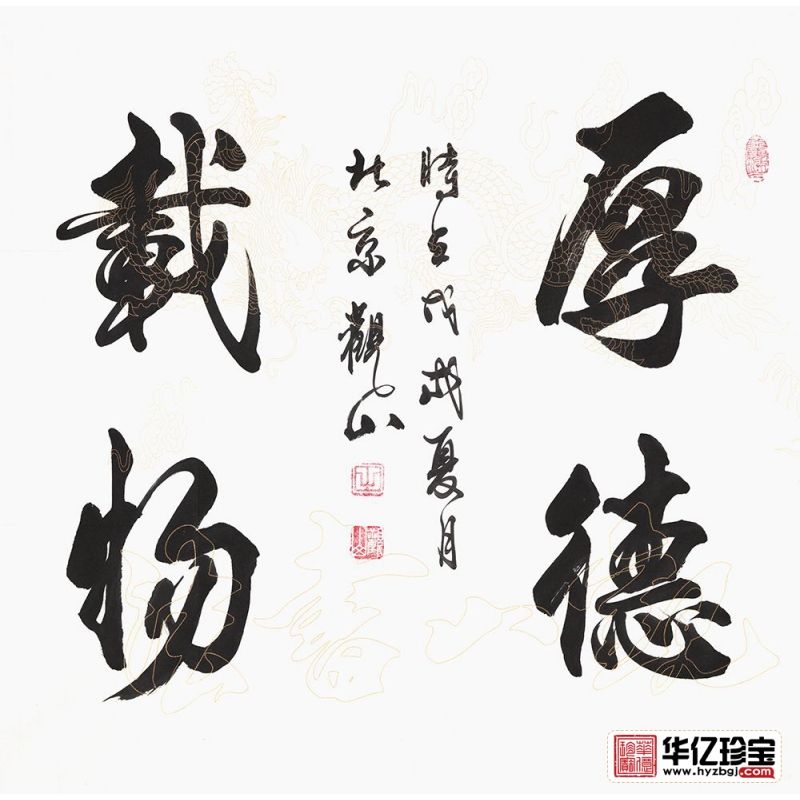 厚德
載物
時在戊戌夏月
北京觀山
华亿珍宝
www.hyzbgj.com